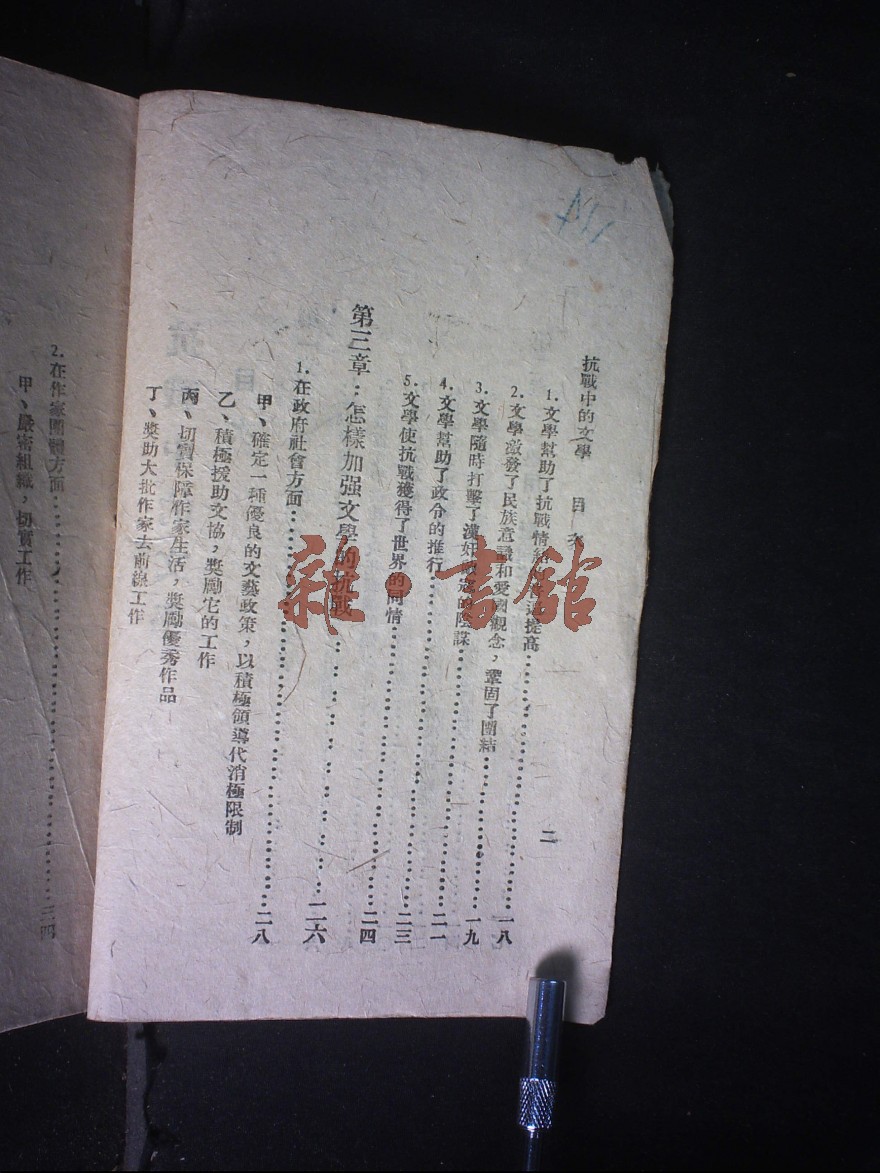 抗戰中的文學 目次 二
1.文學幫助了抗戰情緒的 提高……一八
2.文學激發了民族意識和愛國觀念，鞏固了團結……一九
3.文學隨時打擊了漢奸 的陰謀……二一
4.文學幫助了政令的推行……二三
5.文學使抗戰獲得了世界的同情……二四
第三章：怎樣加强文學的抗戰……二六
1.在政府社會方面……二八
甲、確定一種優良的文藝政策，以積極領導代消極限制
乙、積極援助文協，獎勵它的工作
丙、切實保障作家生活，獎勵優秀作品
丁、獎助大批作家去前線工作
2.在作家團體方面……三四
甲、嚴密組織，切實工作
雜·書館